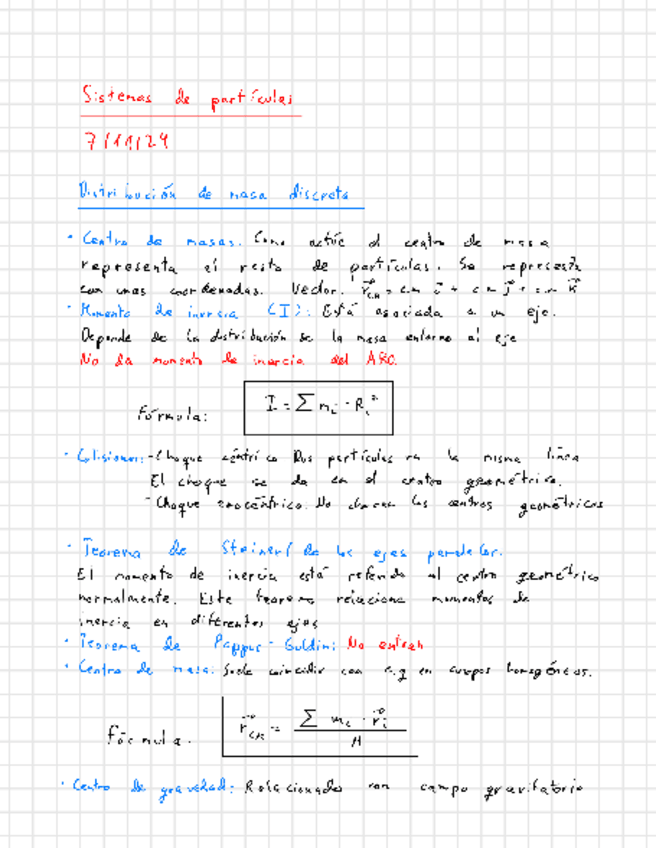 Sistemas de partículas
7/11/24
Distribución de masa discreta
· Centro de masas. Como actúe el centro de masa
representa el resto de partículas. Se representa
con unas coordenadas. Vector. r⃗CM = cm i⃗ + cm j⃗ + cm k⃗
· Momento de inercia (I): Está asociada a un eje.
Depende de la distribución de la masa entorno al eje
No da momento de inercia del ARO.
Fórmula: I = ∑ mi · Ri²
· Colisiones: - Choque céntrico Dos partículas en la misma línea
El choque se da en el centro geométrico.
- Choque excéntrico. No chocan los centros geométricos
· Teorema de Steiner/ de los ejes paralelos.
El momento de inercia está referido al centro geométrico
normalmente. Este teorema relaciona momentos de
inercia en diferentes ejes
· Teorema de Pappus - Guldin: No entran
· Centro de masa: Suele coincidir con c.g en cuerpos homogéneos.
Fórmula. r⃗CM = ∑ mi · r⃗i / M
· Centro de gravedad: Relacionado con campo gravitatorio